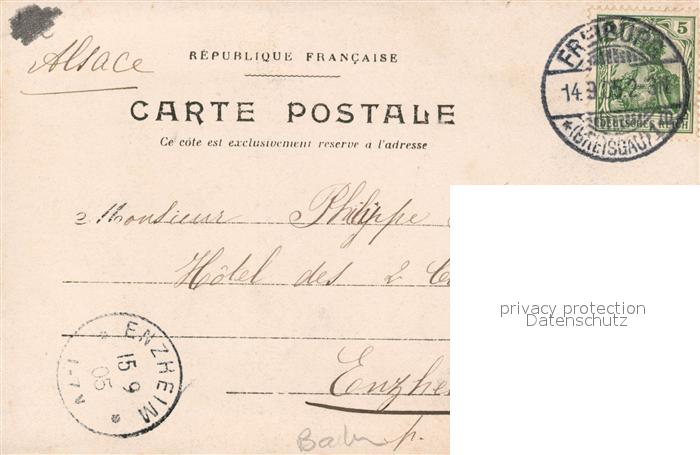 Alsace
RÉPUBLIQUE FRANÇAISE
CARTE POSTALE
Ce côté est exclusivement reservé a l'adresse
5
FREIBURG
14.9.05.2-3N.
*(BREISGAU)1
Monsieur Philippe
Hôtel des 2
Enzhe
ENZHEIM
15 9
05
privacy protection
Datenschutz